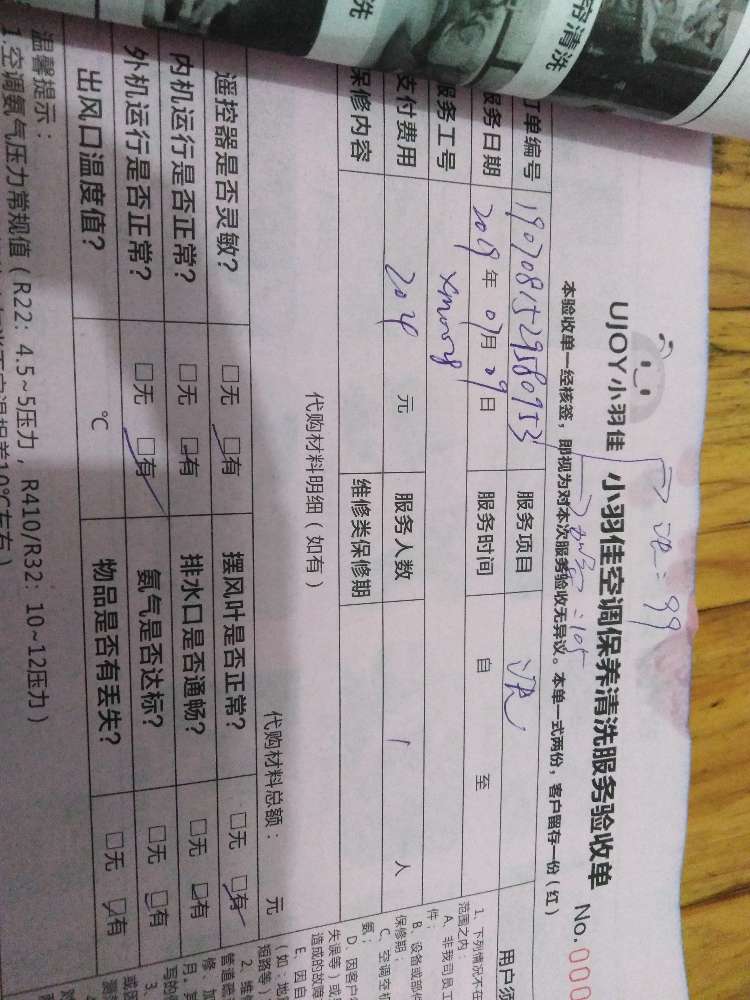 帘清洗
洗
99
UJOY小羽佳 小羽佳空调保养清洗服务验收单 No.000
本验收单一经核签，即视为对本次服务验收无异议。本单一式两份，客户留存一份（红）
105
订单编号 1907081529580953 服务项目
服务日期 2019年07月09日 服务时间 自 至
服务工号
支付费用 204 元 服务人数 1 人
保修内容 维修类保修期
代购材料明细（如有） 代购材料总额： 元
遥控器是否灵敏？ □无 □有 摆风叶是否正常？ □无 □有
内机运行是否正常？ □无 □有 排水口是否通畅？ □无 □有
外机运行是否正常？ □无 □有 氨气是否达标？ □无 □有
出风口温度值？ ℃ 物品是否有丢失？ □无 □有
温馨提示：
1、空调氨气压力常规值（R22：4.5~5压力，R410/R32：10~12压力）
差10℃左右）
用户须
1、下列情况不在
范围之内：
A、非我司员工
件；
B、设备或部件
保修期；
C、空调空机
氨；
D、因客户
失误等）或
造成的故障
E、因自
（如：地
短路等）
2、维
管道疏
修，加
月，
写的
3、